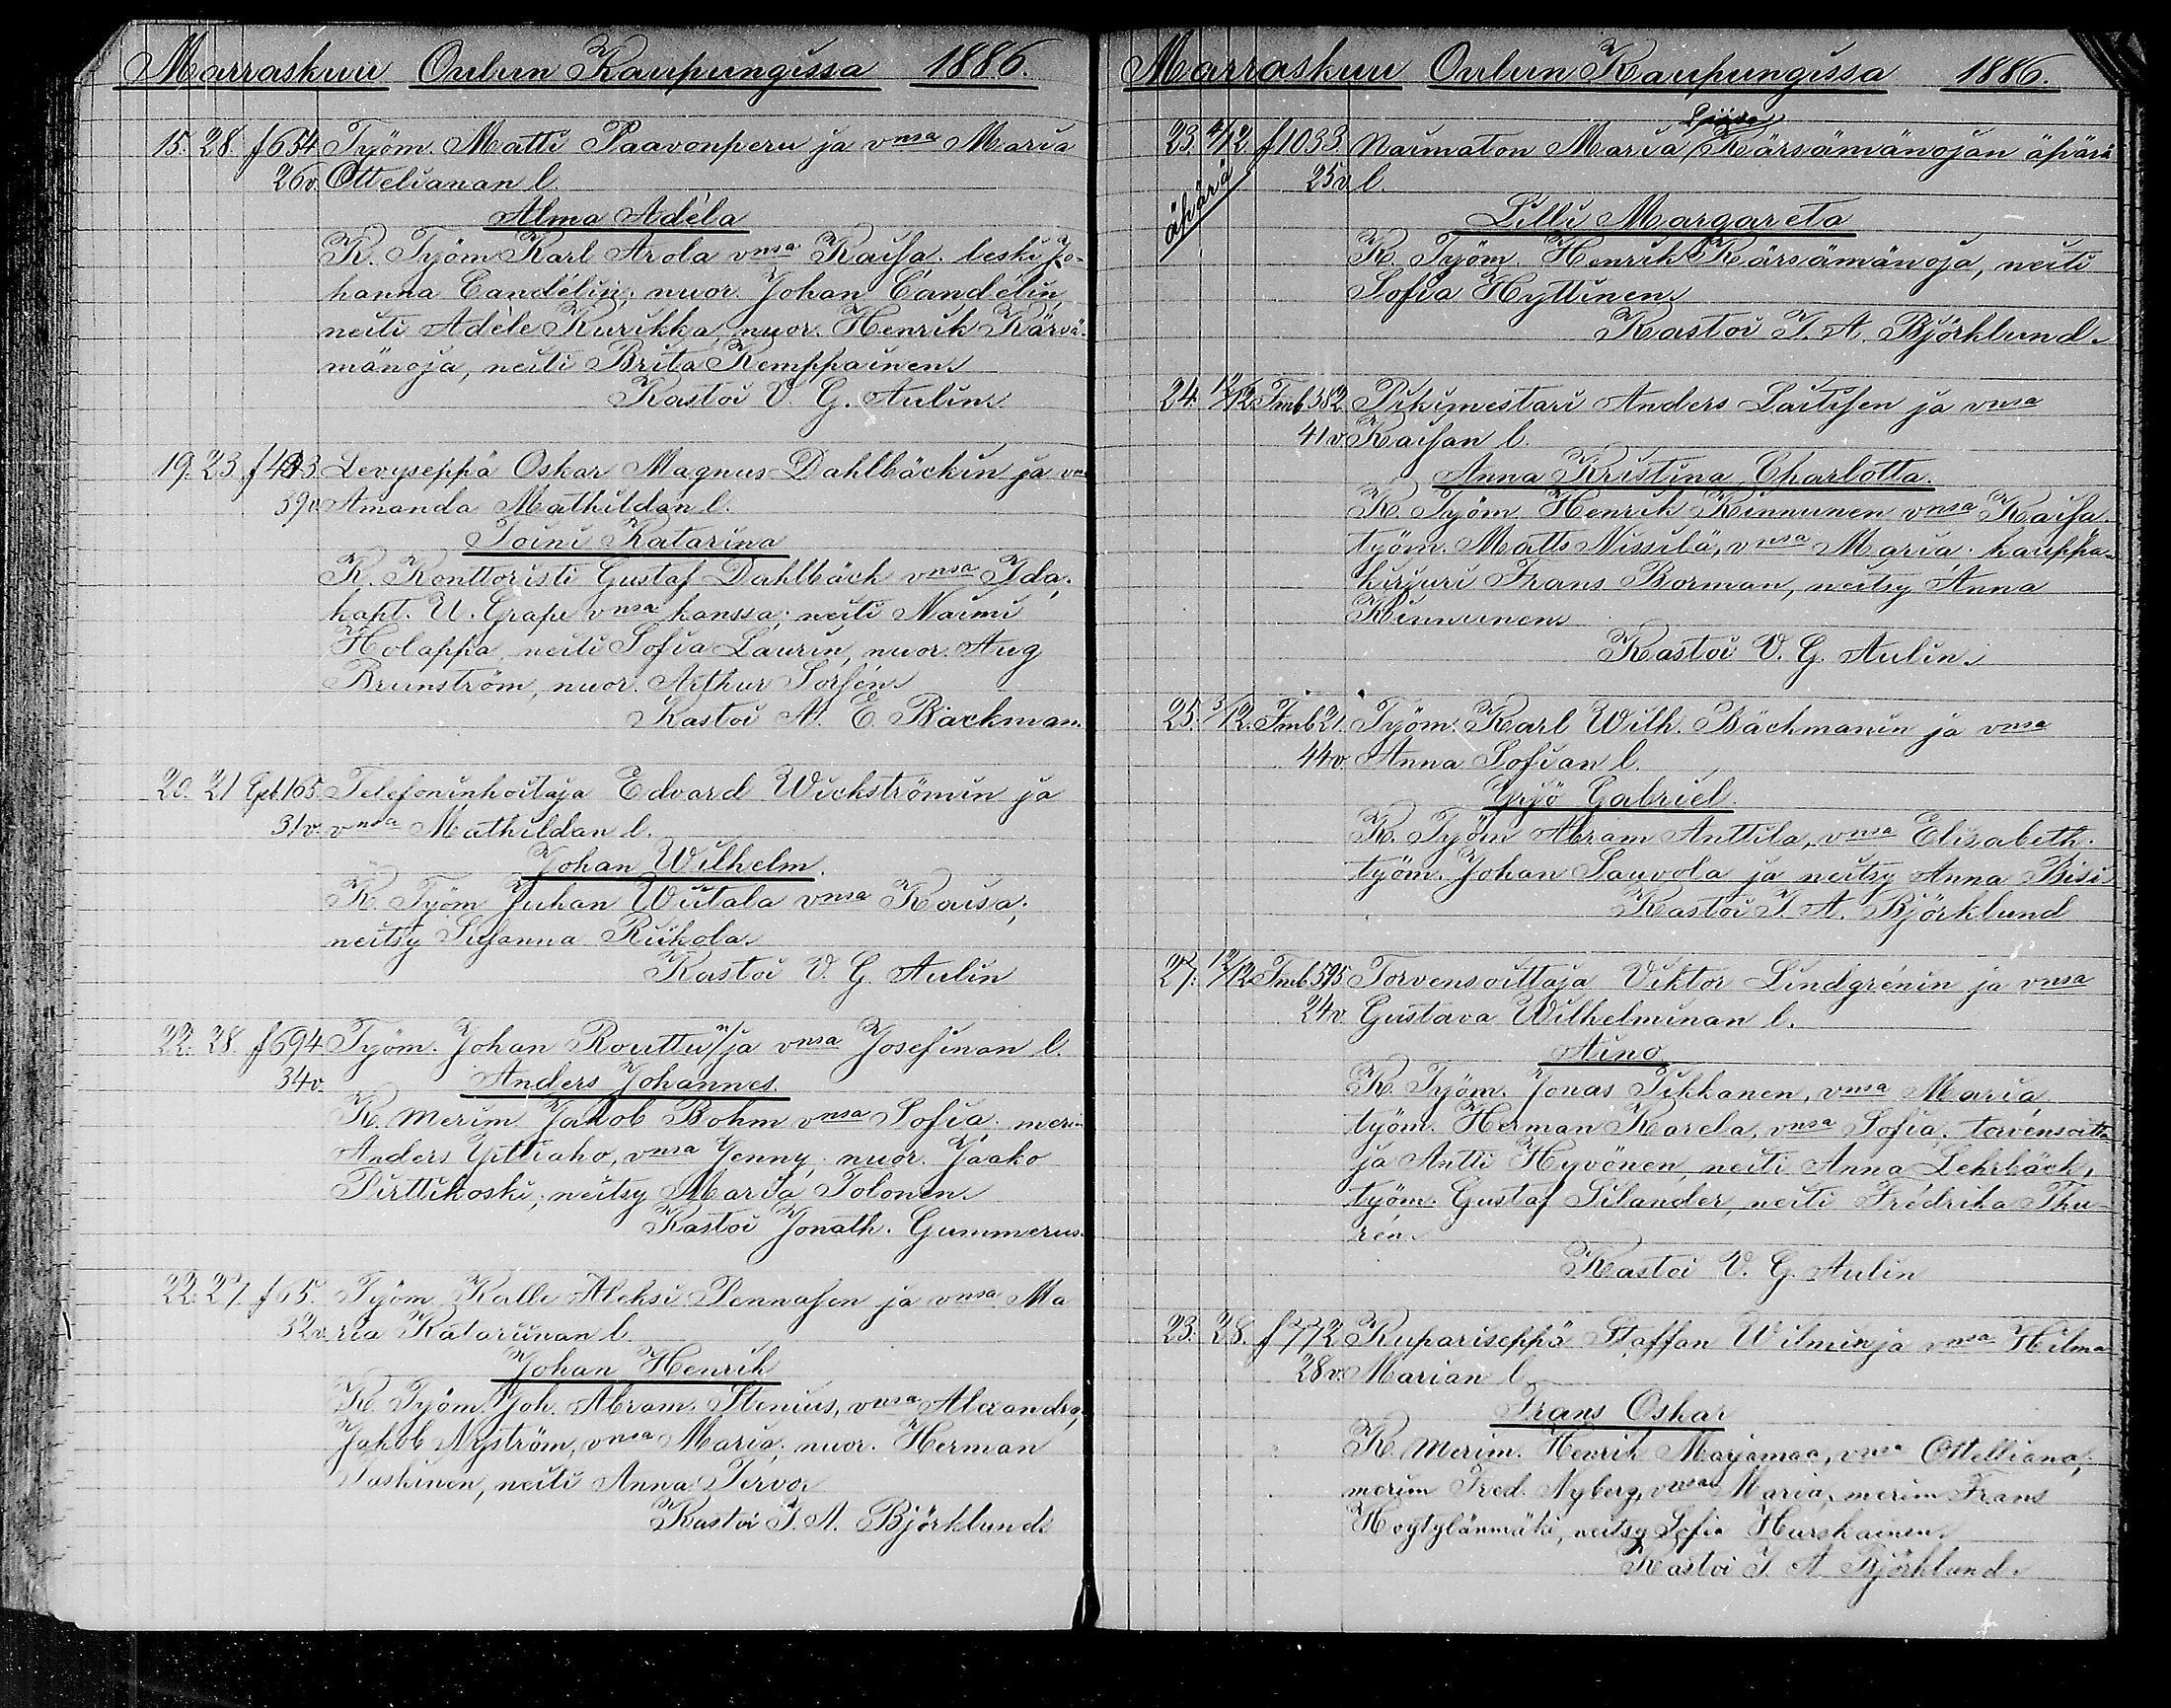 Marraskuu Oulun Kaupungissa 1886.
15. 28. f 654 Työm. Matti Paavonperu ja vnsa Maria
26v. Ottelianan l.
Alma Adéla
K. Työm Karl Arola vnsa Kaisa. leski Jo-
hanna Candélin; nuor. Johan Candélin,
neiti Adèle Kurikka, nuor. Henrik Kärsä-
mänoja, neiti Brita Kemppainen.
Kastoi V. G. Aulin.
19. 23. Levyseppä Oskar Magnus Dahlbäckin ja
39v Amanda Mathildan l.
Toini Katarina
K. Konttoristi Gustaf Dahlbäck vnsa Ida,
kapt. U. Grape vnsa kanssa; neiti Naimi
Holappa, neiti Sofia Laurin, nuor. Aug
Brunström, nuor. Arthur
Kastoi A. E. Backman.
20. 21 165 Telefoninhoitaja Edvard Wickströmin ja
31v. vnsa Mathildan l.
Johan Wilhelm.
K. Työm Juhan Wiitala vnsa Kaisa;
neitsy Susanna Riikola.
Kastoi V. G. Aulin
22. 28. f 694 Työm. Johan Routtu/n ja vnsa Josefinan l.
34v. Anders Johannes.
K. merim. Jakob Bohm vnsa Sofia. merim
Anders Ylliaho, vnsa Jenny; nuor. Jaako
Pirttikoski; neitsy Maria Tolonen.
Kastoi Jonath. Gummerus.
22. 27. f 65. Työm. Kalle Aleksi Pennasen ja vnsa Ma
32v. ria Katariinan l.
Johan Henrik
K. Työm. Joh. Abram. Stenius, vnsa Alexandra,
Jakob Nyström, vnsa Maria; nuor. Herman
Saskinen, neiti Anna Tervo.
Kastoi I. A. Björklund.
Marraskuu Oulun Kaupungissa 1886.
23. 4/12 f 1033. Naimaton Maria Kärsämänojan äpärä
äpärä 25v. l.
Lilli Margareta
K. Työm. Henrik Kärsämänoja, neiti
Sofia Hyttinen.
Kastoi I. A. Björklund.
24. 12/12 Tmb 582. Pikimestari Anders Laitisen ja vnsa
41v. Kaisan l.
Anna Kristina Charlotta.
K. Työm. Henrik Kinnunen vnsa Kaisa.
työm. Matts Nissilä, vnsa Maria. kauppa-
kirjuri Frans Borman, neitsy Anna
Kinnunen.
Kastoi V. G. Aulin.
25. 5/12. Tmb 21. Työm. Karl Wilh. Bäckmanin ja vnsa
44v. Anna Sofian l.
Yrjö Gabriel.
K. Työm Abram Anttila, vnsa Elisabeth.
työm. Johan Sauvola ja neitsy Anna Bisi
Kastoi I. A. Björklund
27. 12/12. Tmb 595. Torvensoittaja Viktor Lindgrénin ja vnsa
24v. Gustava Wilhelminan l.
Aino
K. Työm. Jonas Tikkanen, vnsa Maria,
työm. Herman Karela, vnsa Sofia. torvensoitta
ja Antti Hyvönen, neiti Anna Lehrbäck,
työm. Gustaf Silander, neiti Fredrika Thu-
rén.
Kastoi V. G. Aulin
23. 28. f 772 Kupariseppä Staffan Wilmin ja vnsa Hilma
28v. Marian l.
Frans Oskar
K. merim. Henrik Marjamaa, vnsa Ottelliana;
merim Fred. Nyberg, vnsa Maria, merim Frans
Höytylänmäki, neitsy Sofia Hurskainen.
Kastoi I. A. Björklund.